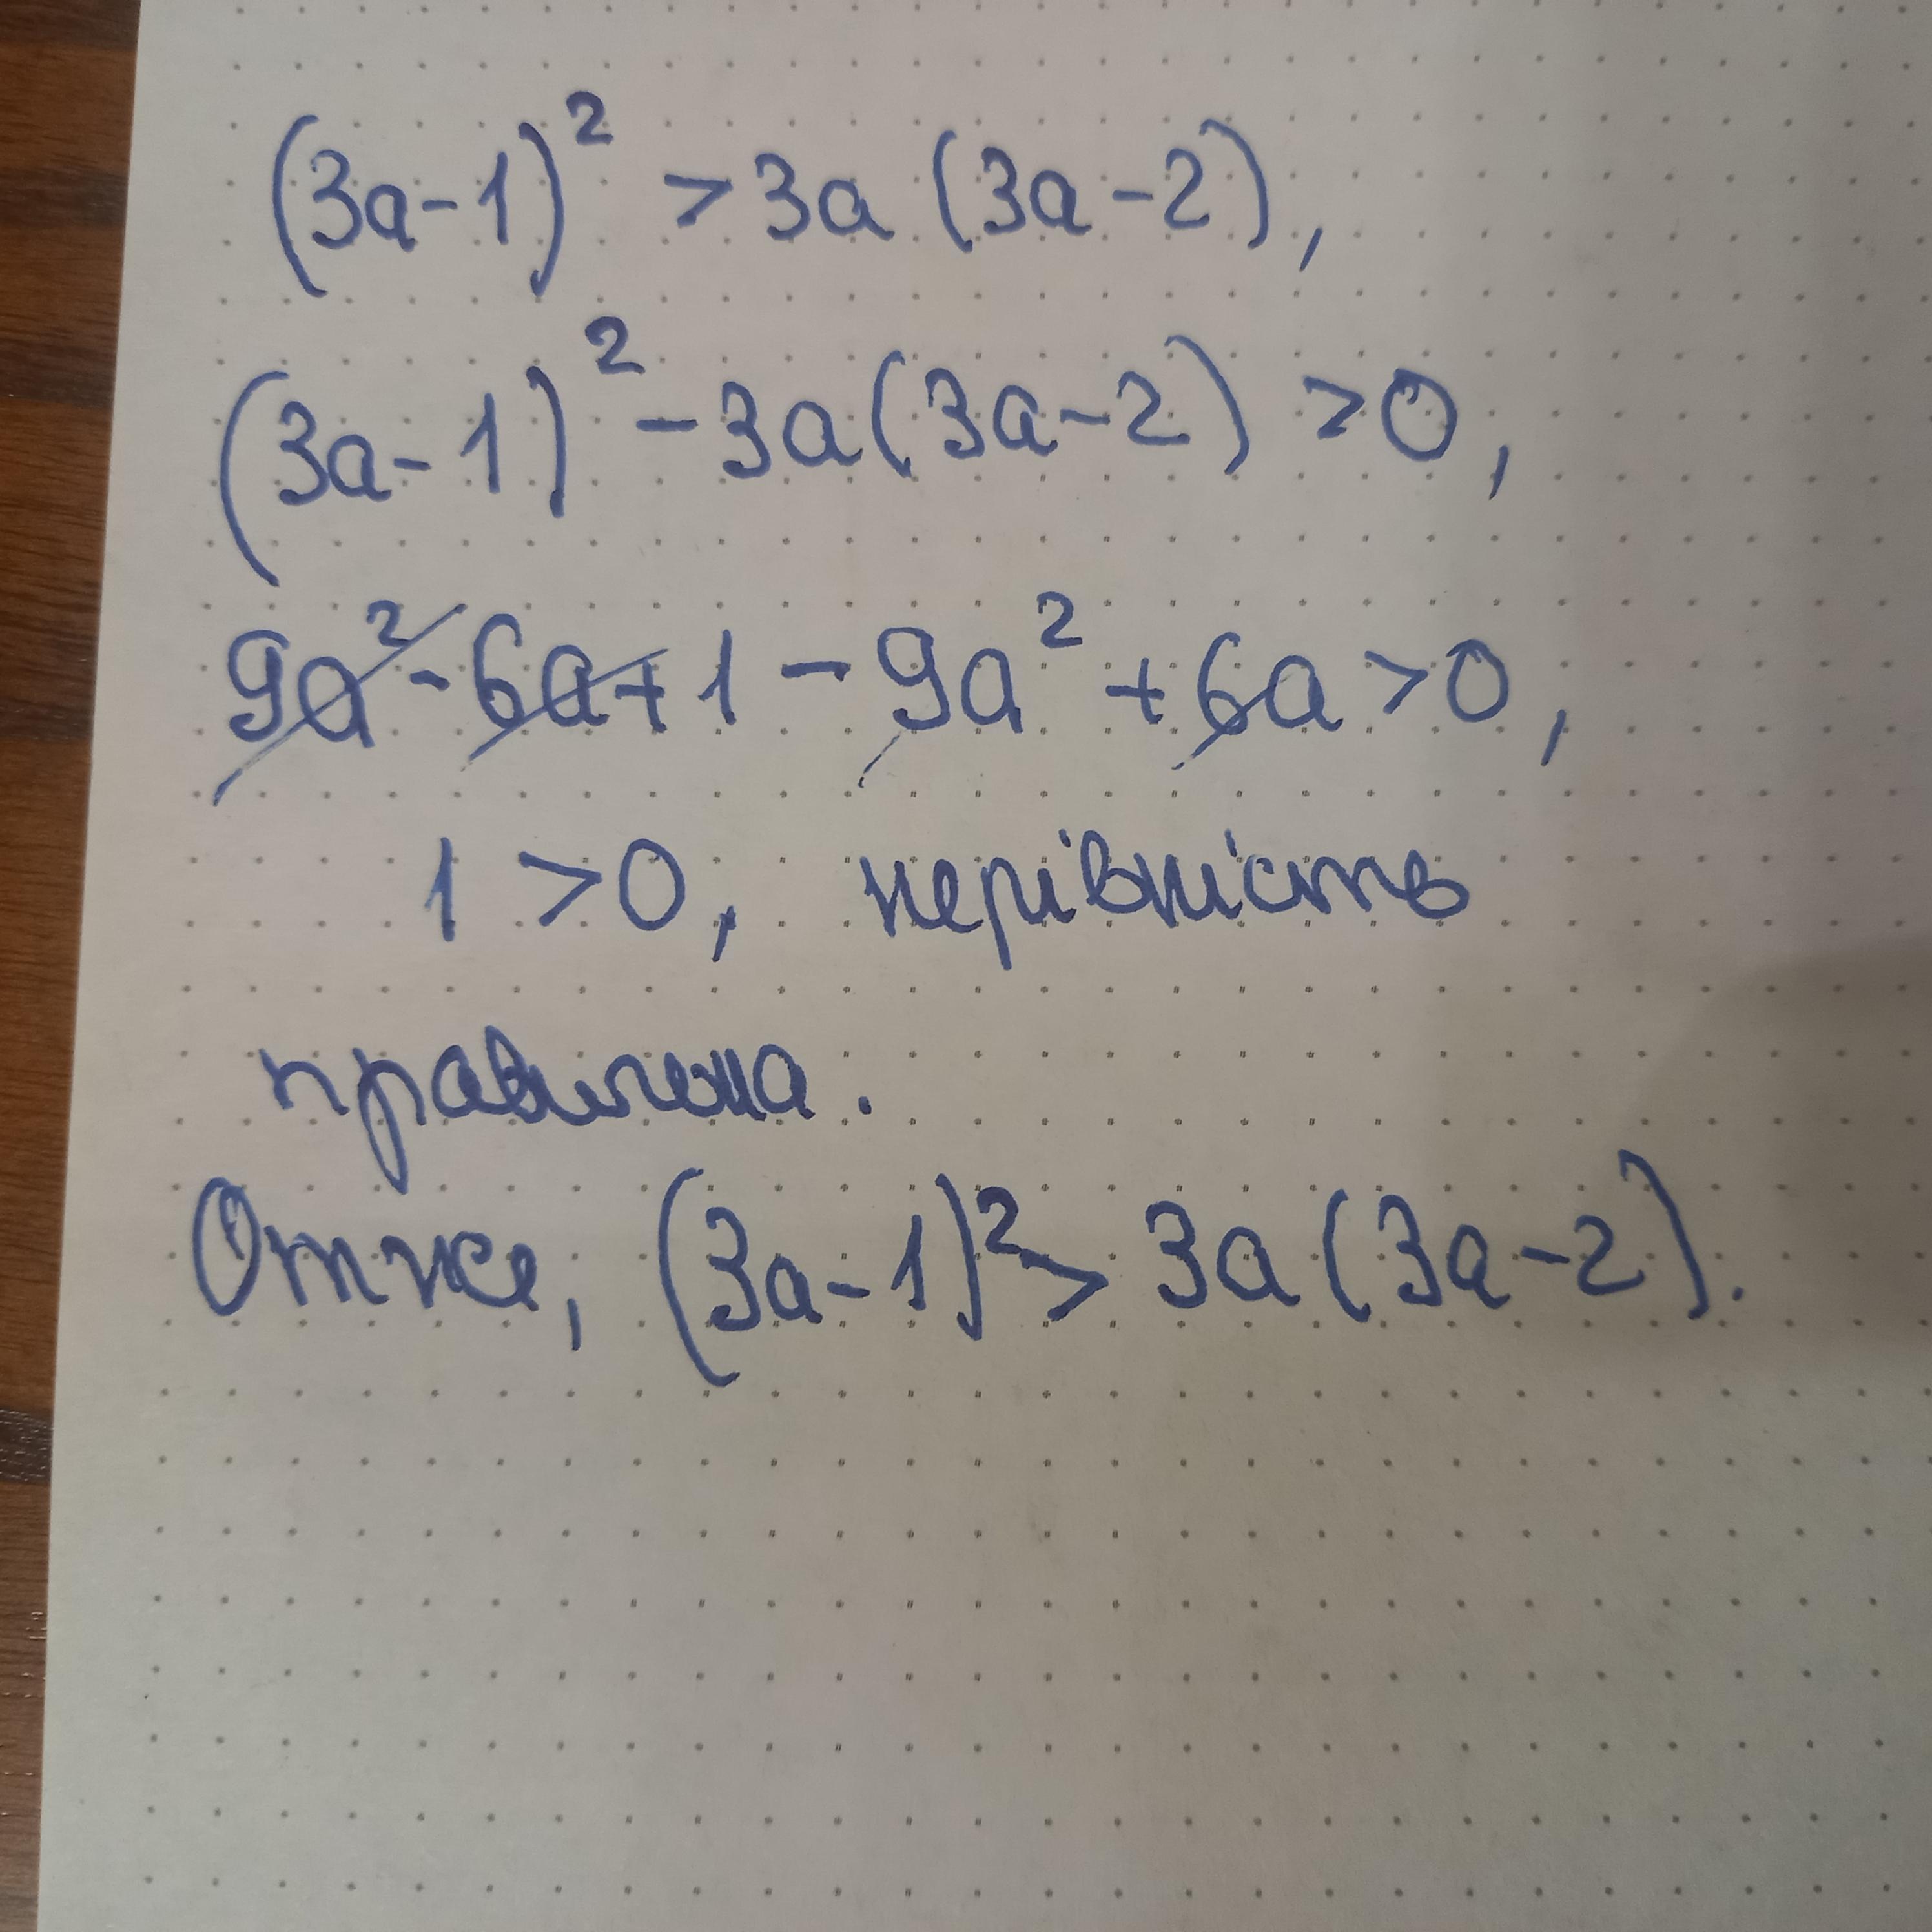 (3a-1)² > 3a (3a-2),
(3a-1)² - 3a(3a-2) > 0,
9a² - 6a + 1 - 9a² + 6a > 0,
1 > 0, нерівність
правильна.
Отже, (3a-1)² > 3a (3a-2).